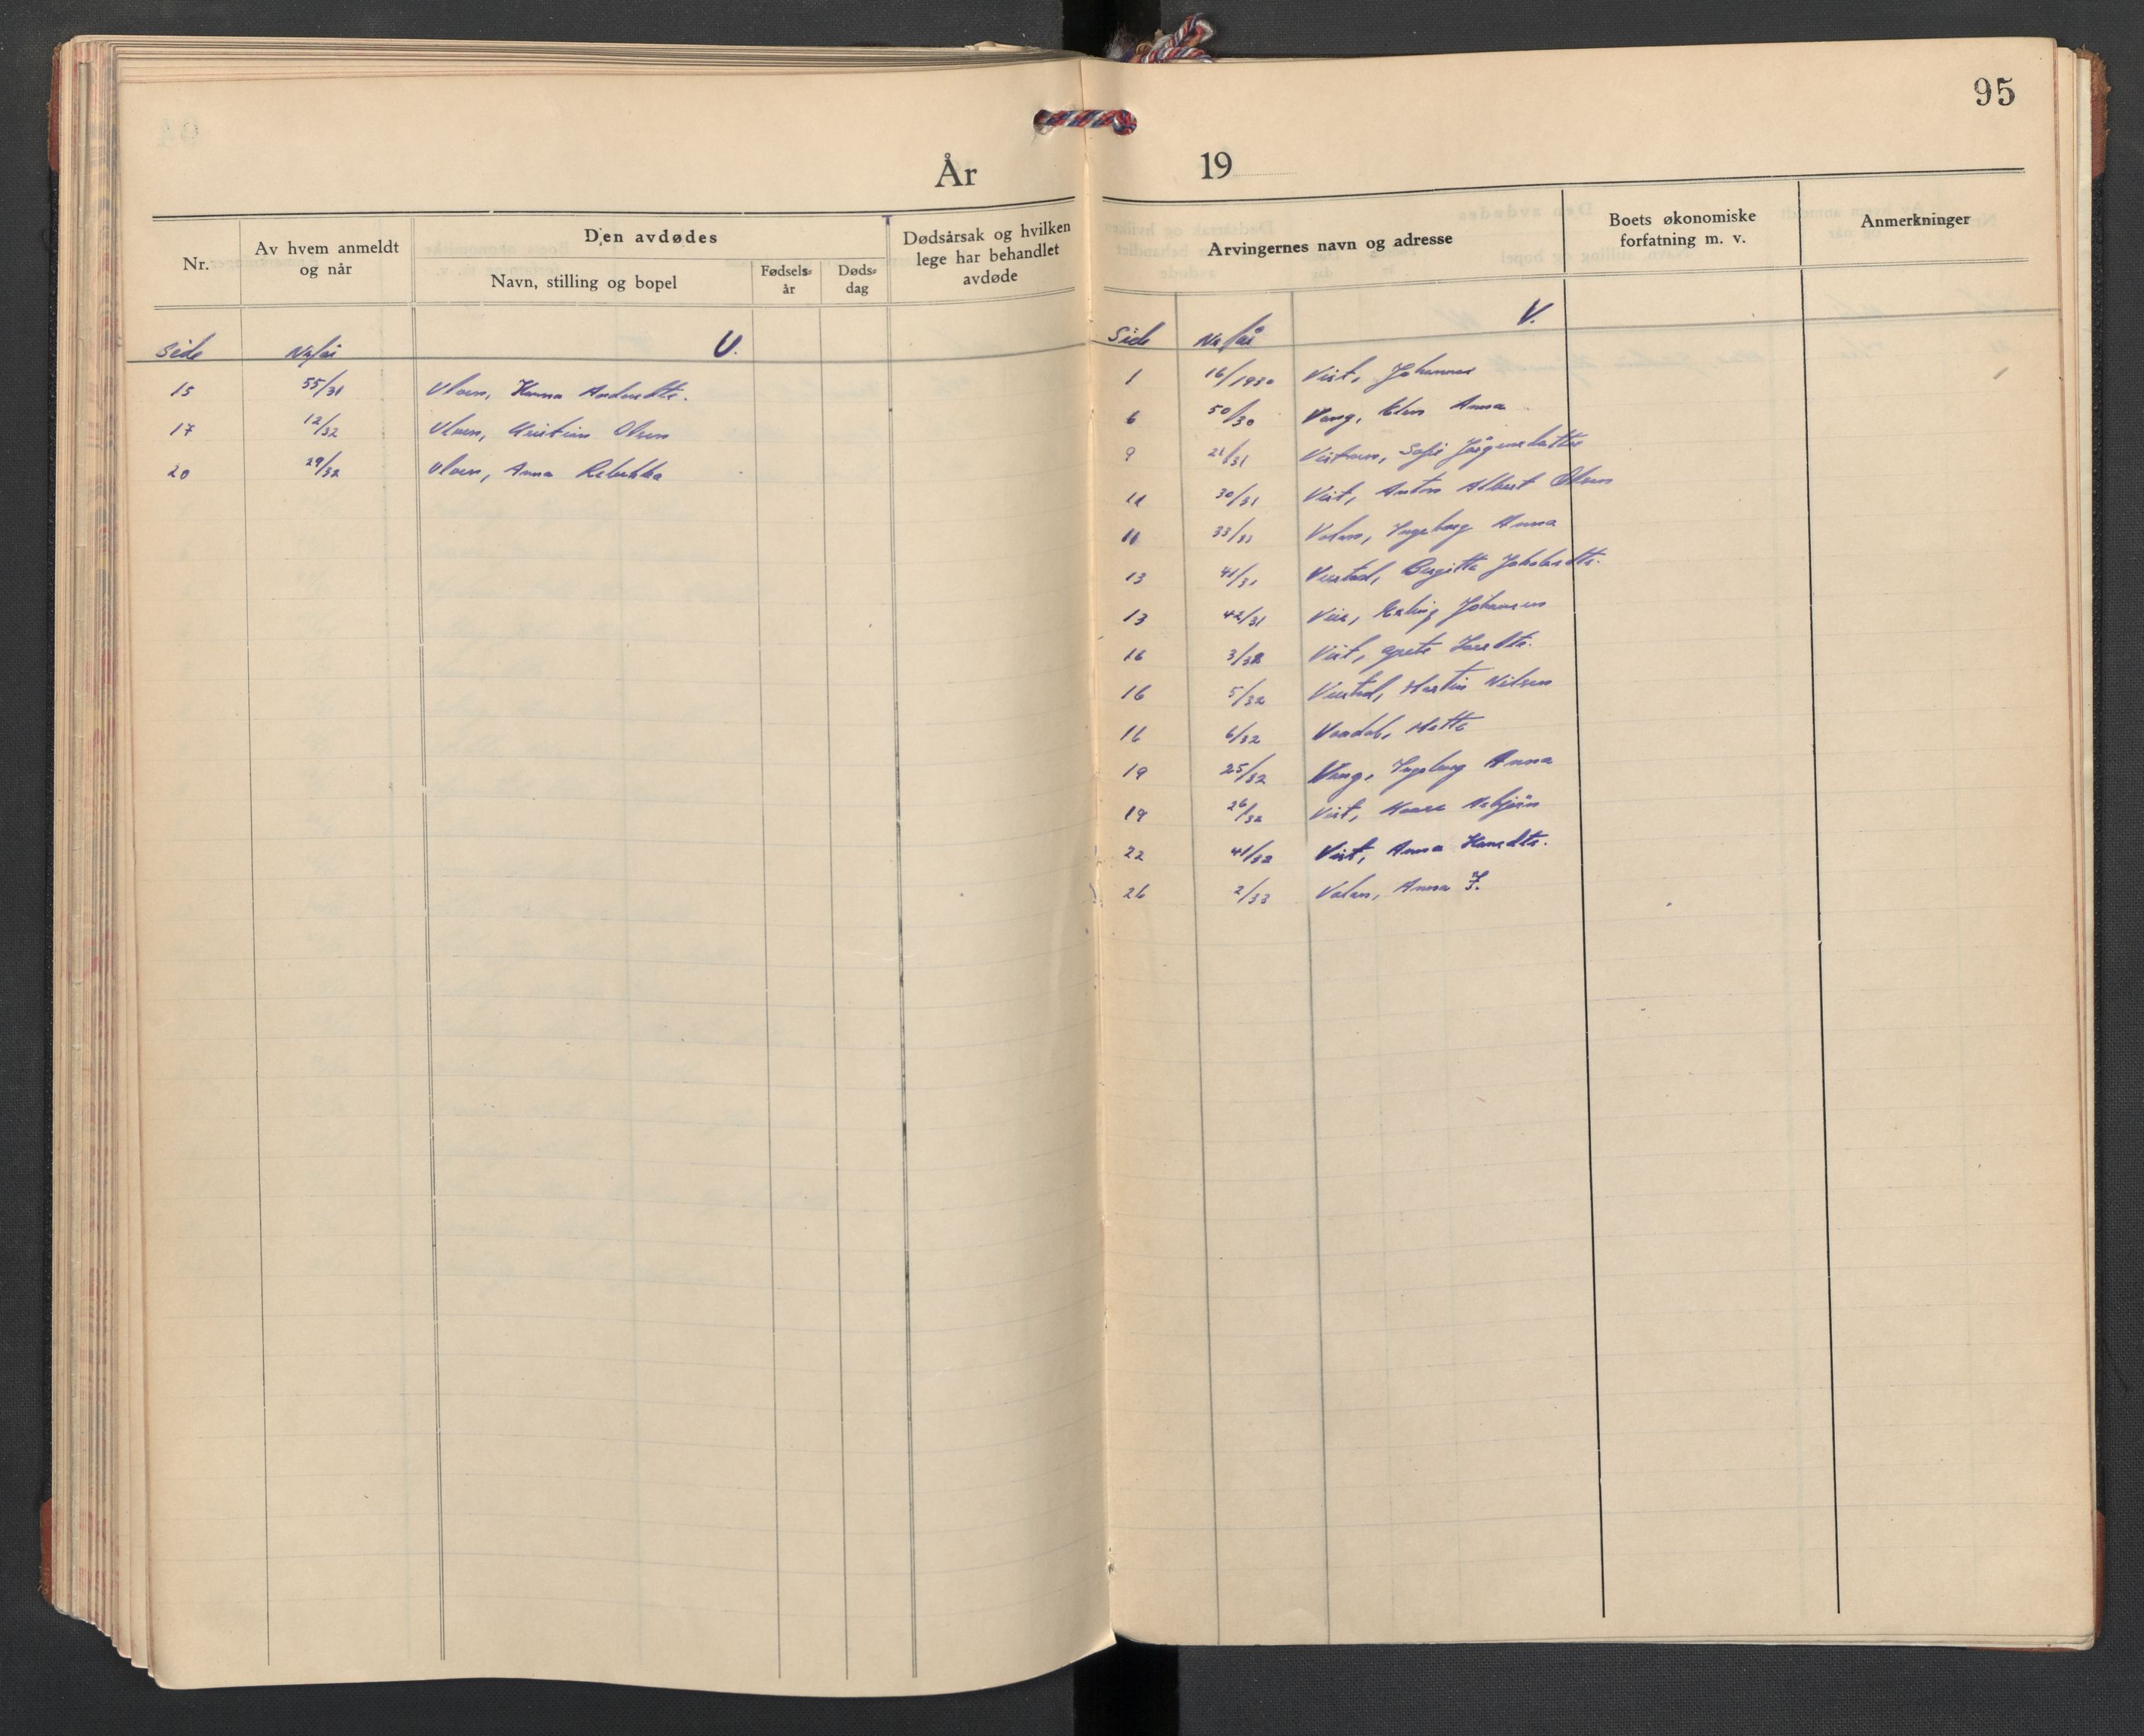 95
År 19
Nr.
Av hvem anmeldt
og når
Den avdødes
Navn, stilling og bopel
Fødsels-
år
Døds-
dag
Dødsårsak og hvilken
lege har behandlet
avdøde
Side Nr/år U.
15 55/31 Uloen, Hanna Andersdtr.
17 12/32 Uloen, Kristian Olsen
20 29/32 Uloen, Anna Rebekka
Arvingernes navn og adresse
Boets økonomiske
forfatning m. v.
Anmerkninger
Side Nr/år V.
1 16/1930 Vist, Johannes
6 50/30 Vang, Elen Anna
9 21/31 Sofie Jörgensdatter
11 30/31 Vist, Anton Albert Olsen
11 33/31 Volan, Ingeborg Anna
13 41/31 Verstad, Birgitte
13 42/31 Johansen
16 3/32 Vist,
16 5/32 Verstad, Martin Nilsen
16 6/32 Mette
19 25/32 Vang, Ingeborg Anna
19 26/32 Vist, Kaare Asbjörn
22 41/32 Vist, Anna Hansdtr.
26 2/33 Volan, Anna J.